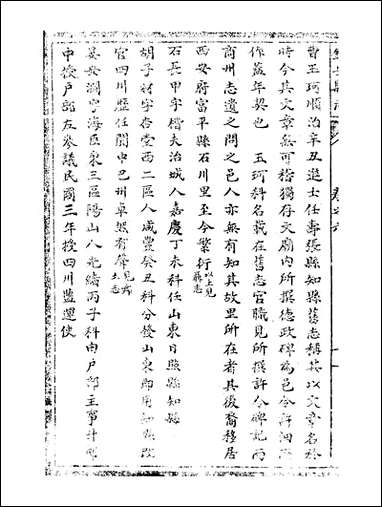 曹王珂順治辛丑進士任壽張縣知縣舊志稱其以文章名於
時今其文章無可稽獨存文廟內所撰德政碑為邑令許泗
作蓋年契也 玉珂科名載在舊志官職見所撰許令碑記而
商州志遺之問之邑人亦無有知其故里所在者其後裔移居
西安府富平縣石川里至今繁衍以上見舊志
石長甲字楷夫治城人嘉慶丁未科任山東日照縣知縣
胡子材字杏堂西二區人咸豐癸丑科分發山東即用知縣改
官四川歷任閬中巴州卓然有聲
晏安瀾字海臣東三區陽山人光緒丙子科由戶部主事升
中授戶部左參議民國三年授四川鹽運使